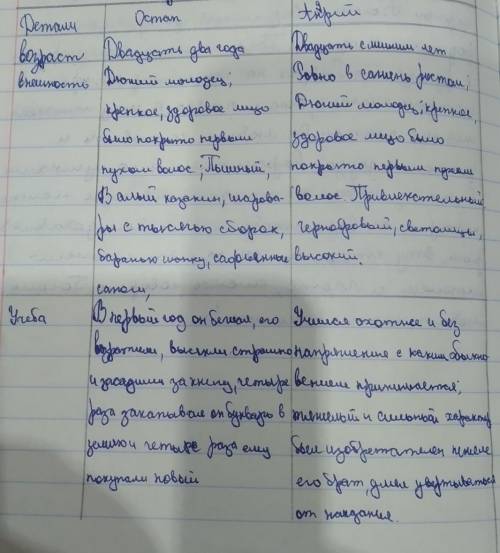 Детали Остап Андрий
возраст Двадцать два года Двадцать с лишним лет
внешность Дюжий молодец; Ровно в сажень ростом;
крепкое, здоровое лицо Дюжий молодец; крепкое,
было покрыто первым здоровое лицо было
пухом волос; Пышный; покрыто первым пухом
В алый казакин, шарова- волос. Привлекательный
ры с тысячью сборок, чернобровый, светлолицы,
баранью шапку, сафьянные высокий.
сапоги,
Учеба В первый год он бежал, его Учился охотнее и без
возратили, высекли страшно напряжение с каким обыкно
и засадили за книгу, четыре вением принимается;
раза закапывал он букварь в тяжелый и сильной характер
землю и четыре раза ему был изобретателен нежели
покупали новый его брат, умел увертываться
от наказания.